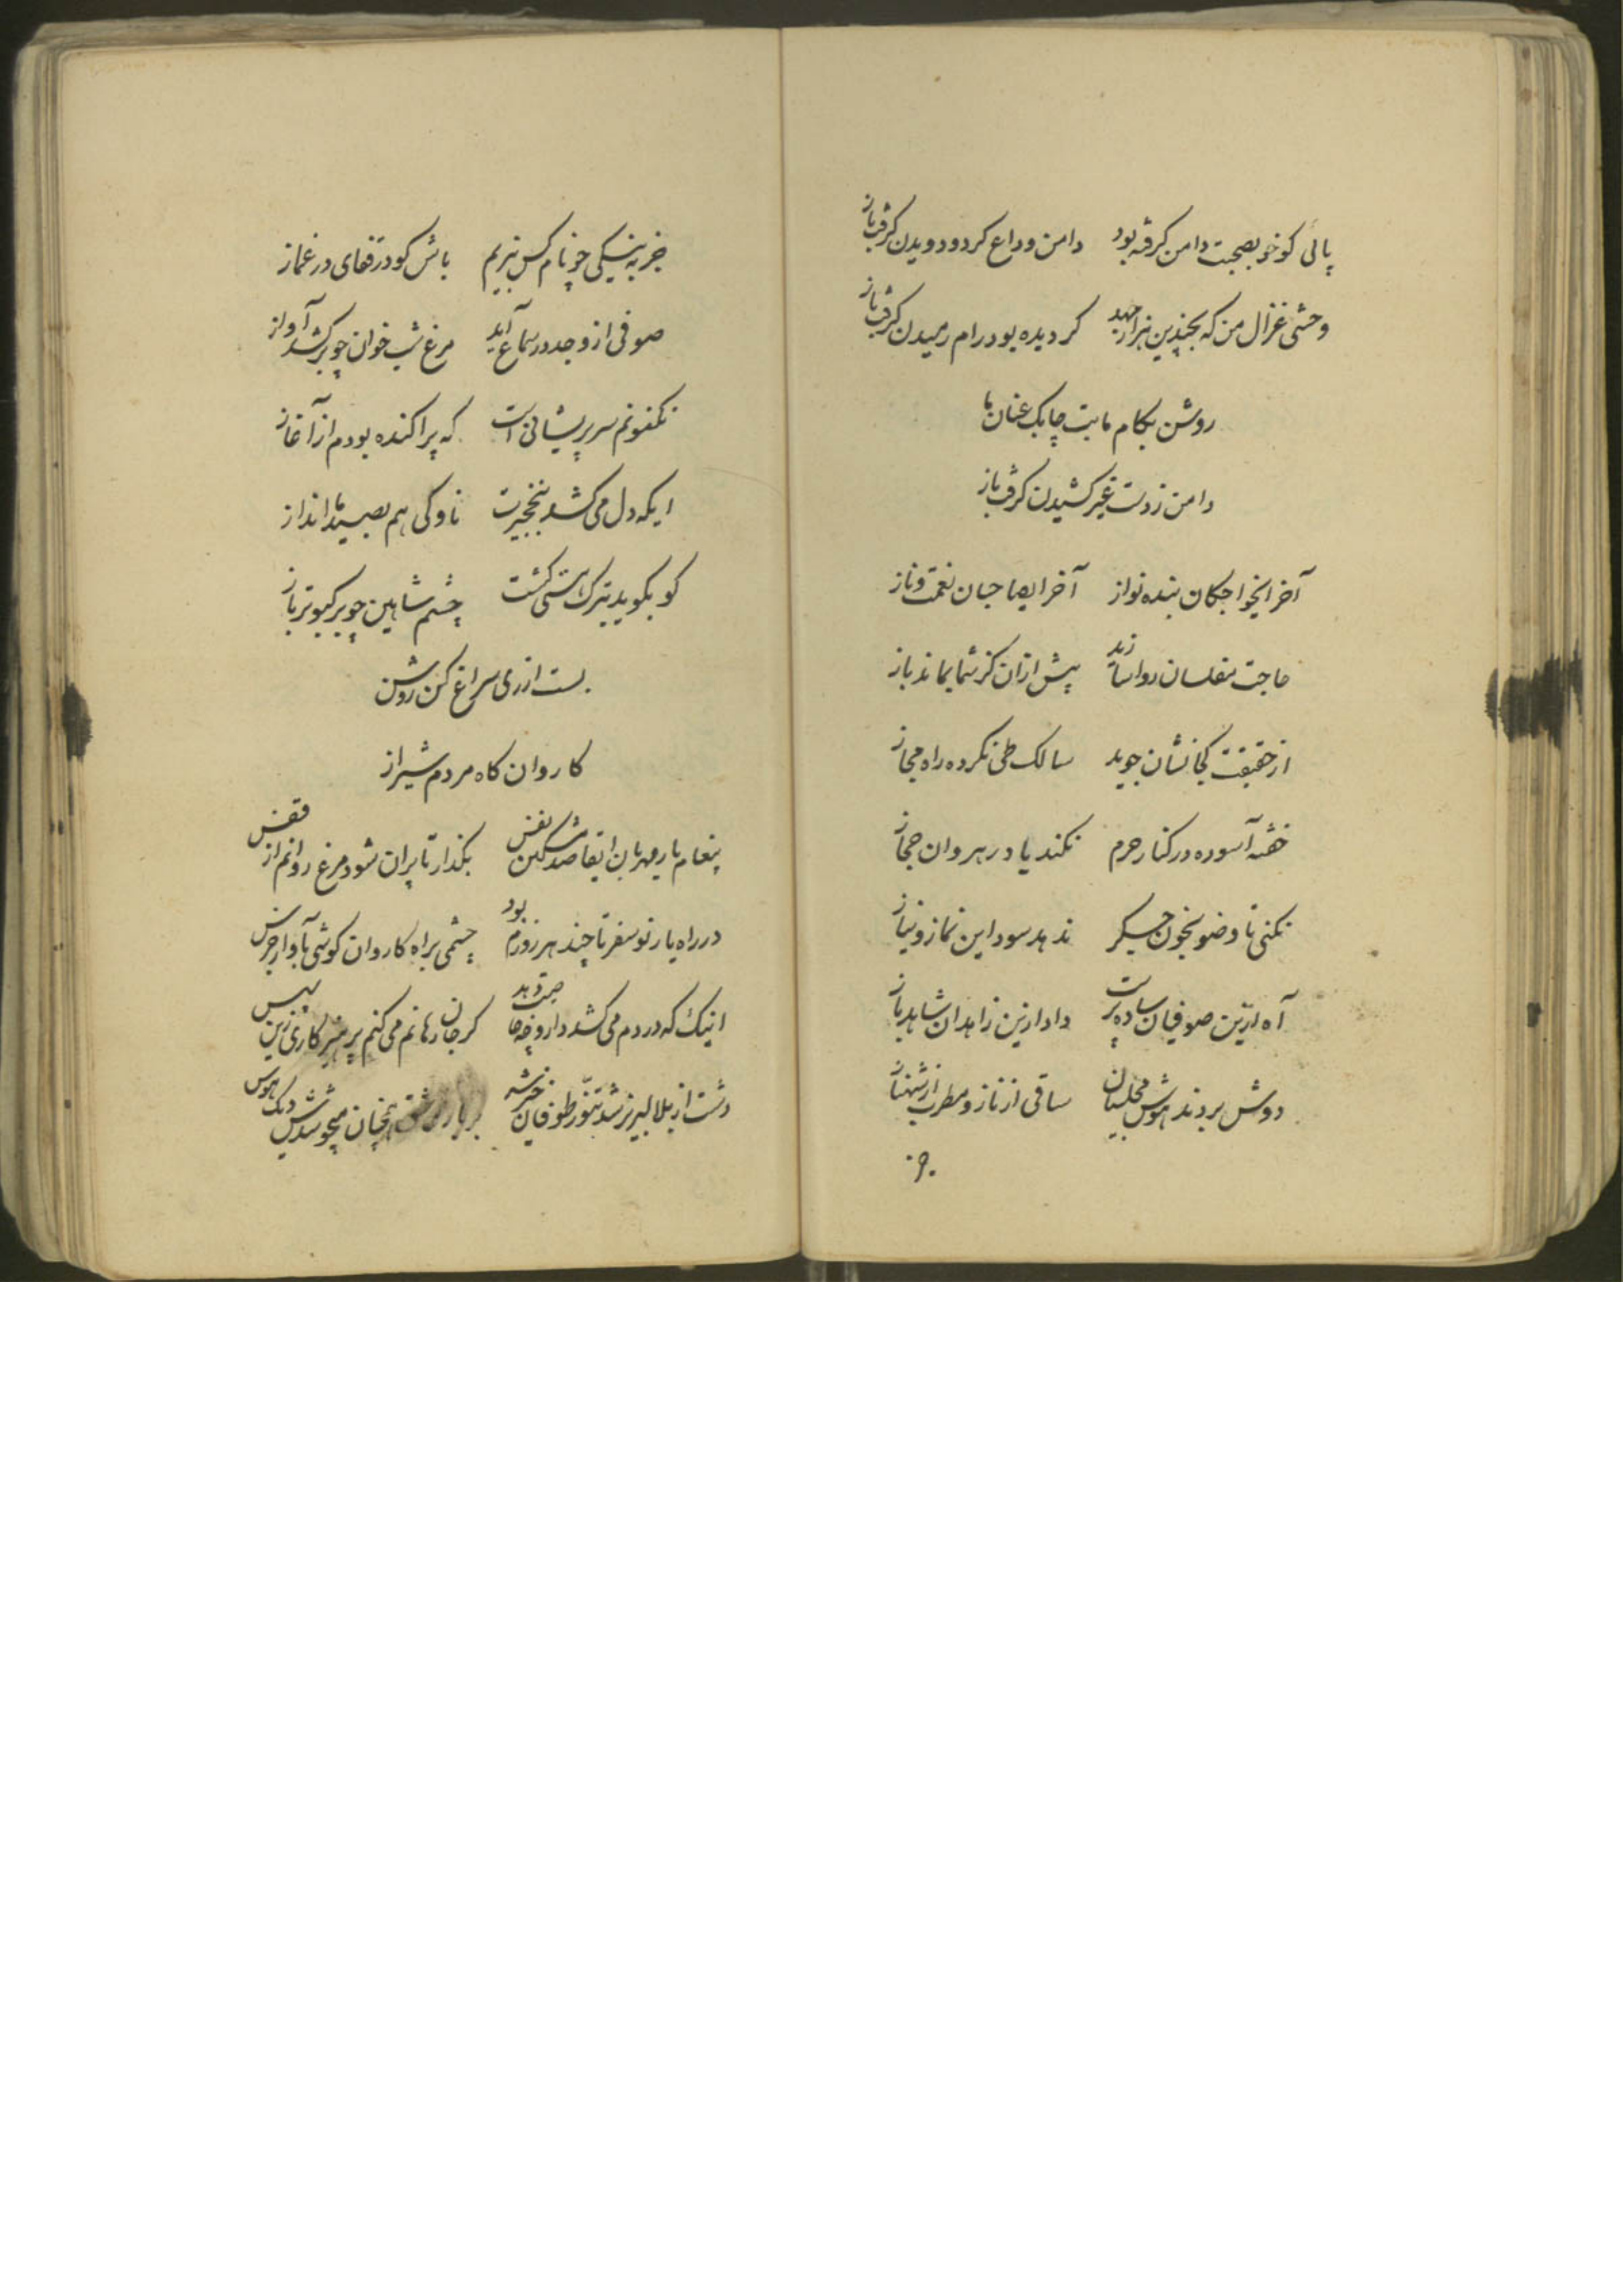 پائی کو خو بصحبت دامن گرفته بود دامن وداع کرد و دویدن گرفت باز
وحشی غزال من که بچندین هزار جهد گردیده بود رام رمیدن گرفت باز
روشن بکام ما بت چابک عنان ما
دامن ز دست غیر کشیدن گرفت باز
آخر ایخواجکان بنده نواز آخر ایصاحبان نعمت و ناز
حاجت مفلسان روا سازید پیش ازان کز شما بماند باز
از حقیقت کجا نشان جوید سالک طی نکرده راه مجاز
خفته آسوده در کنار حرم نکند یاد رهروان حجاز
نکنی تا وضو بخون جگر ندهد سود این نماز و نیاز
آه ازین صوفیان ساده پرست داد ازین زاهدان شاهدباز
دوش بردند هوش مجلسیان ساقی از ناز و مطرب از شهناز
جز به نیکی چو نام کس نبریم باش کو در قفای در غماز
صوفی از وجد در سماع آید مرغ شب خوان چو برکشد آواز
نکنونم سر پریشانی است که پراکنده بودم از آغاز
ایکه دل می کشد بنخجیرت ناوکی هم بصید ما انداز
کو بگوید بترک هستی گشت چشم شاهین چو بر کبوتر باز
بست از ری سراغ کن روشن
کاروان گاه مردم شیراز
پیغام یار مهربان ایقاصد مشکین نفس بگذار تا پران شود مرغ روانم از قفس
در راه یار نوسفر تا چند هر روزم بود چشمی براه کاروان گوشی بآواز جرس
اینک که دردم می کشد دارو چه حاصل میدهد گر جان رهانم می کنم پرهیزکاری زین سپس
دشت از بلا لبریز شد تنور طوفان خیز شد بر یار عشق همچنان میجوشدش دیک هوس